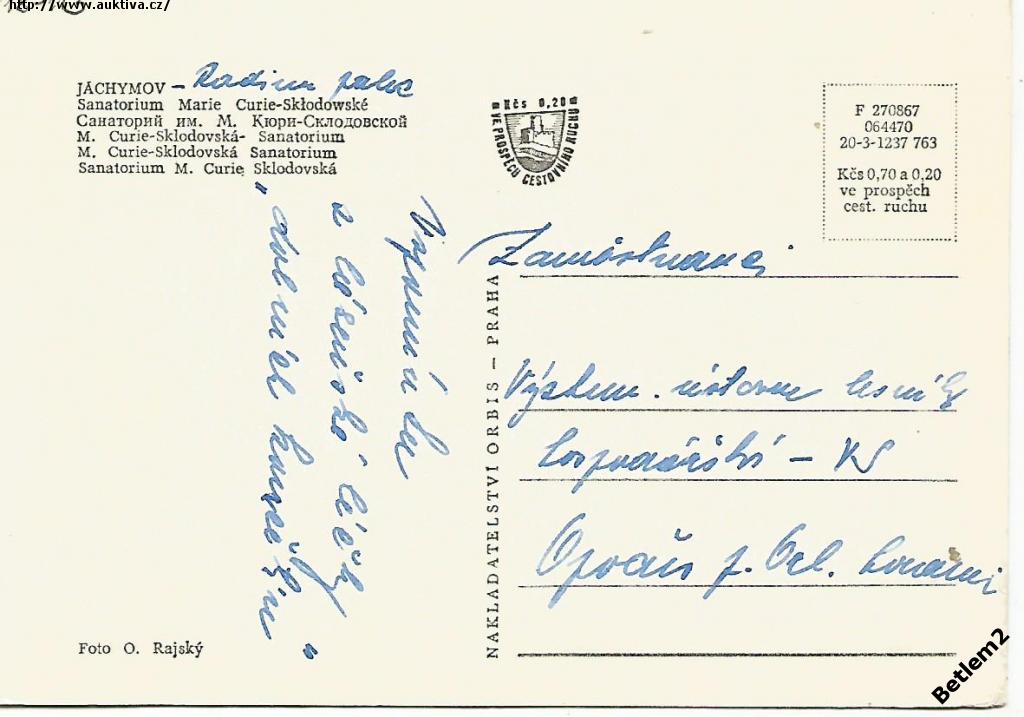 http://www.auktiva.cz/
JÁCHYMOV – Radium palac
Sanatorium Marie Curie-Skłodowské
Санаторий им. М. Кюри-Склодовской
M. Curie-Sklodovská- Sanatorium
M. Curie-Sklodovská Sanatorium
Sanatorium M. Curie Sklodovská
Kčs 0,20
VE PROSPĚCH CESTOVNÍHO RUCHU
F 270867
064470
20-3-1237 763
Kčs 0,70 a 0,20
ve prospěch
cest. ruchu
z lázeňské léčby
"
"
Zaměstnanci
Výzkum. lesního
hospodářství – VS
Opočno p. Orl. horami
NAKLADATELSTVÍ ORBIS — PRAHA
Foto O. Rajský
Betlem2